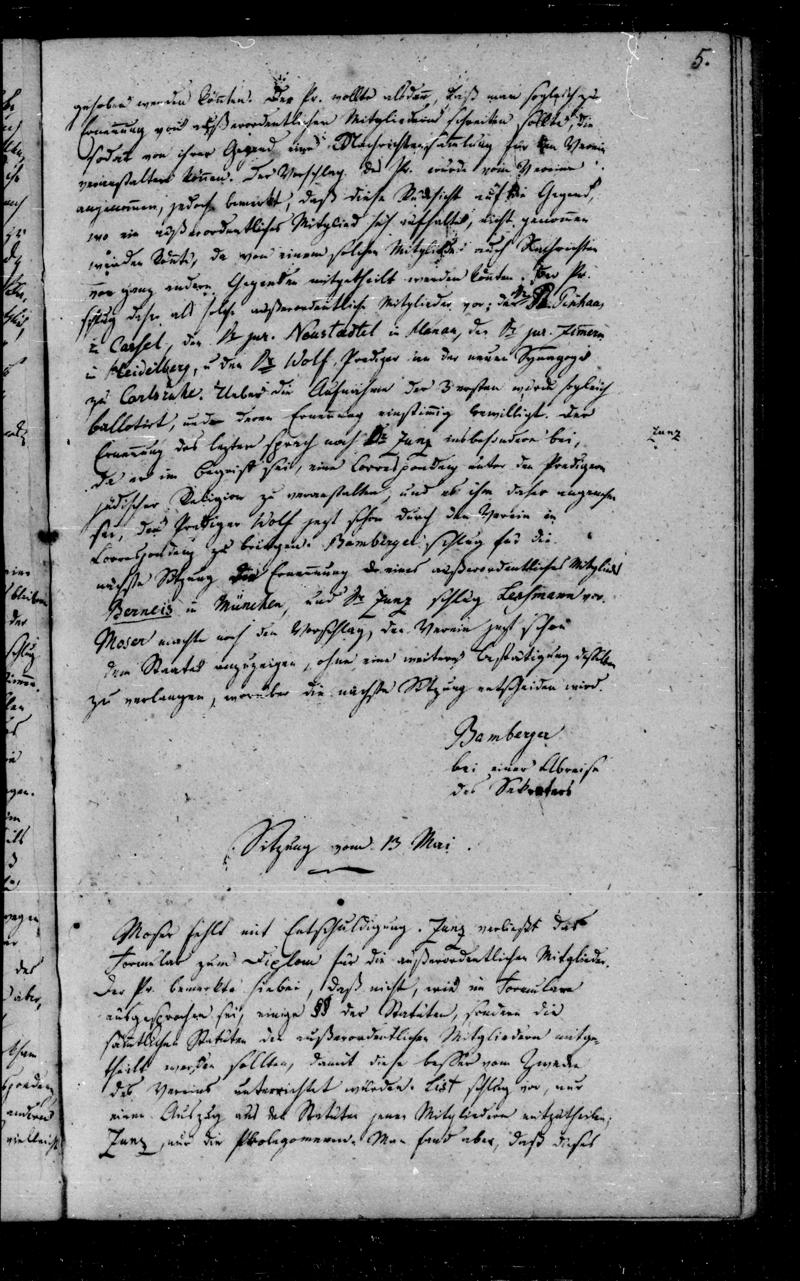 5.
gehoben werden könten. Der Pr. wollte alsdann, daß man sogleich zu
Ernennung von außerordentlichen Mitgliedern schreiten sollte, die
sodan von ihrer Gegend eine Nachrichtensammlung für den Verein
veranstalten können. Der Vorschlag des Pr. wurde vom Vereine
angenommen, jedoch bemerkt, daß diese Rücksicht auf die Gegend,
wo ein außerordentliches Mitglied sich aufhalte, nicht genommen
werden könte, da von einem solchen Mitgliede auch Nachrichten
von ganz andern Gegenden mitgetheilt werden könten. Der Pr.
schlug daher als solche außerordentliche Mitglieder vor; den Dr Pinhas
in Cassel, den Dr jur. Neustädtel in Hanau, den Dr jur. Zimmern
in Heidelberg, u den Dr Wolf, Prediger in der neuen Synagoge
zu Carlsruhe. Ueber die Aufnahme der 3 ersten wurde sogleich
ballotirt, und deren Ernennung einstimmig bewilligt. Der
Ernennung des leztern sprach noch Dr Zunz insbesondere bei,
Zunz
da er im Begriff sei, eine Correspondenz unter den Predigern
jüdischer Religion zu veranstalten, und es ihm daher angenehm
sei, den Prediger Wolf jezt schon durch den Verein in
Correspondenz zu bringen. Bamberger schlug für die
nächste Sitzung die Ernennung eines außerordentliches Mitglied
Berneis in München, und Dr Zunz schlug Lessmann vor.
Moser machte noch den Vorschlag, den Verein jezt schon
dem Staate anzuzeigen, ohne eine weitere Bestätigung desselben
zu verlangen, worüber die nächste Sitzung entscheiden wird.
Bamberger
bei einer Abreise
des Sekretärs
Sitzung vom 13 Mai.
Moser fehlt mit Entschuldigung. Zunz verließt das
Formular zum Diplom für die außerordentlichen Mitglieder.
Der Pr. bemerkte hiebei, daß nicht, wie im Formulare
ausgesprochen sei, einige §§ der Statuten, sondern die
sämtlichen Statuten den außerordentlichen Mitgliedern mitge-
theilt werden sollten, damit diese besser vom Zwecke
des Vereins unterrichtet würden. List schlug vor, nur
einen Auszug aus den Statuten jenen Mitgliedern mitzutheilen;
Zunz, nur die Prolegomena. Man fand aber, daß dieses